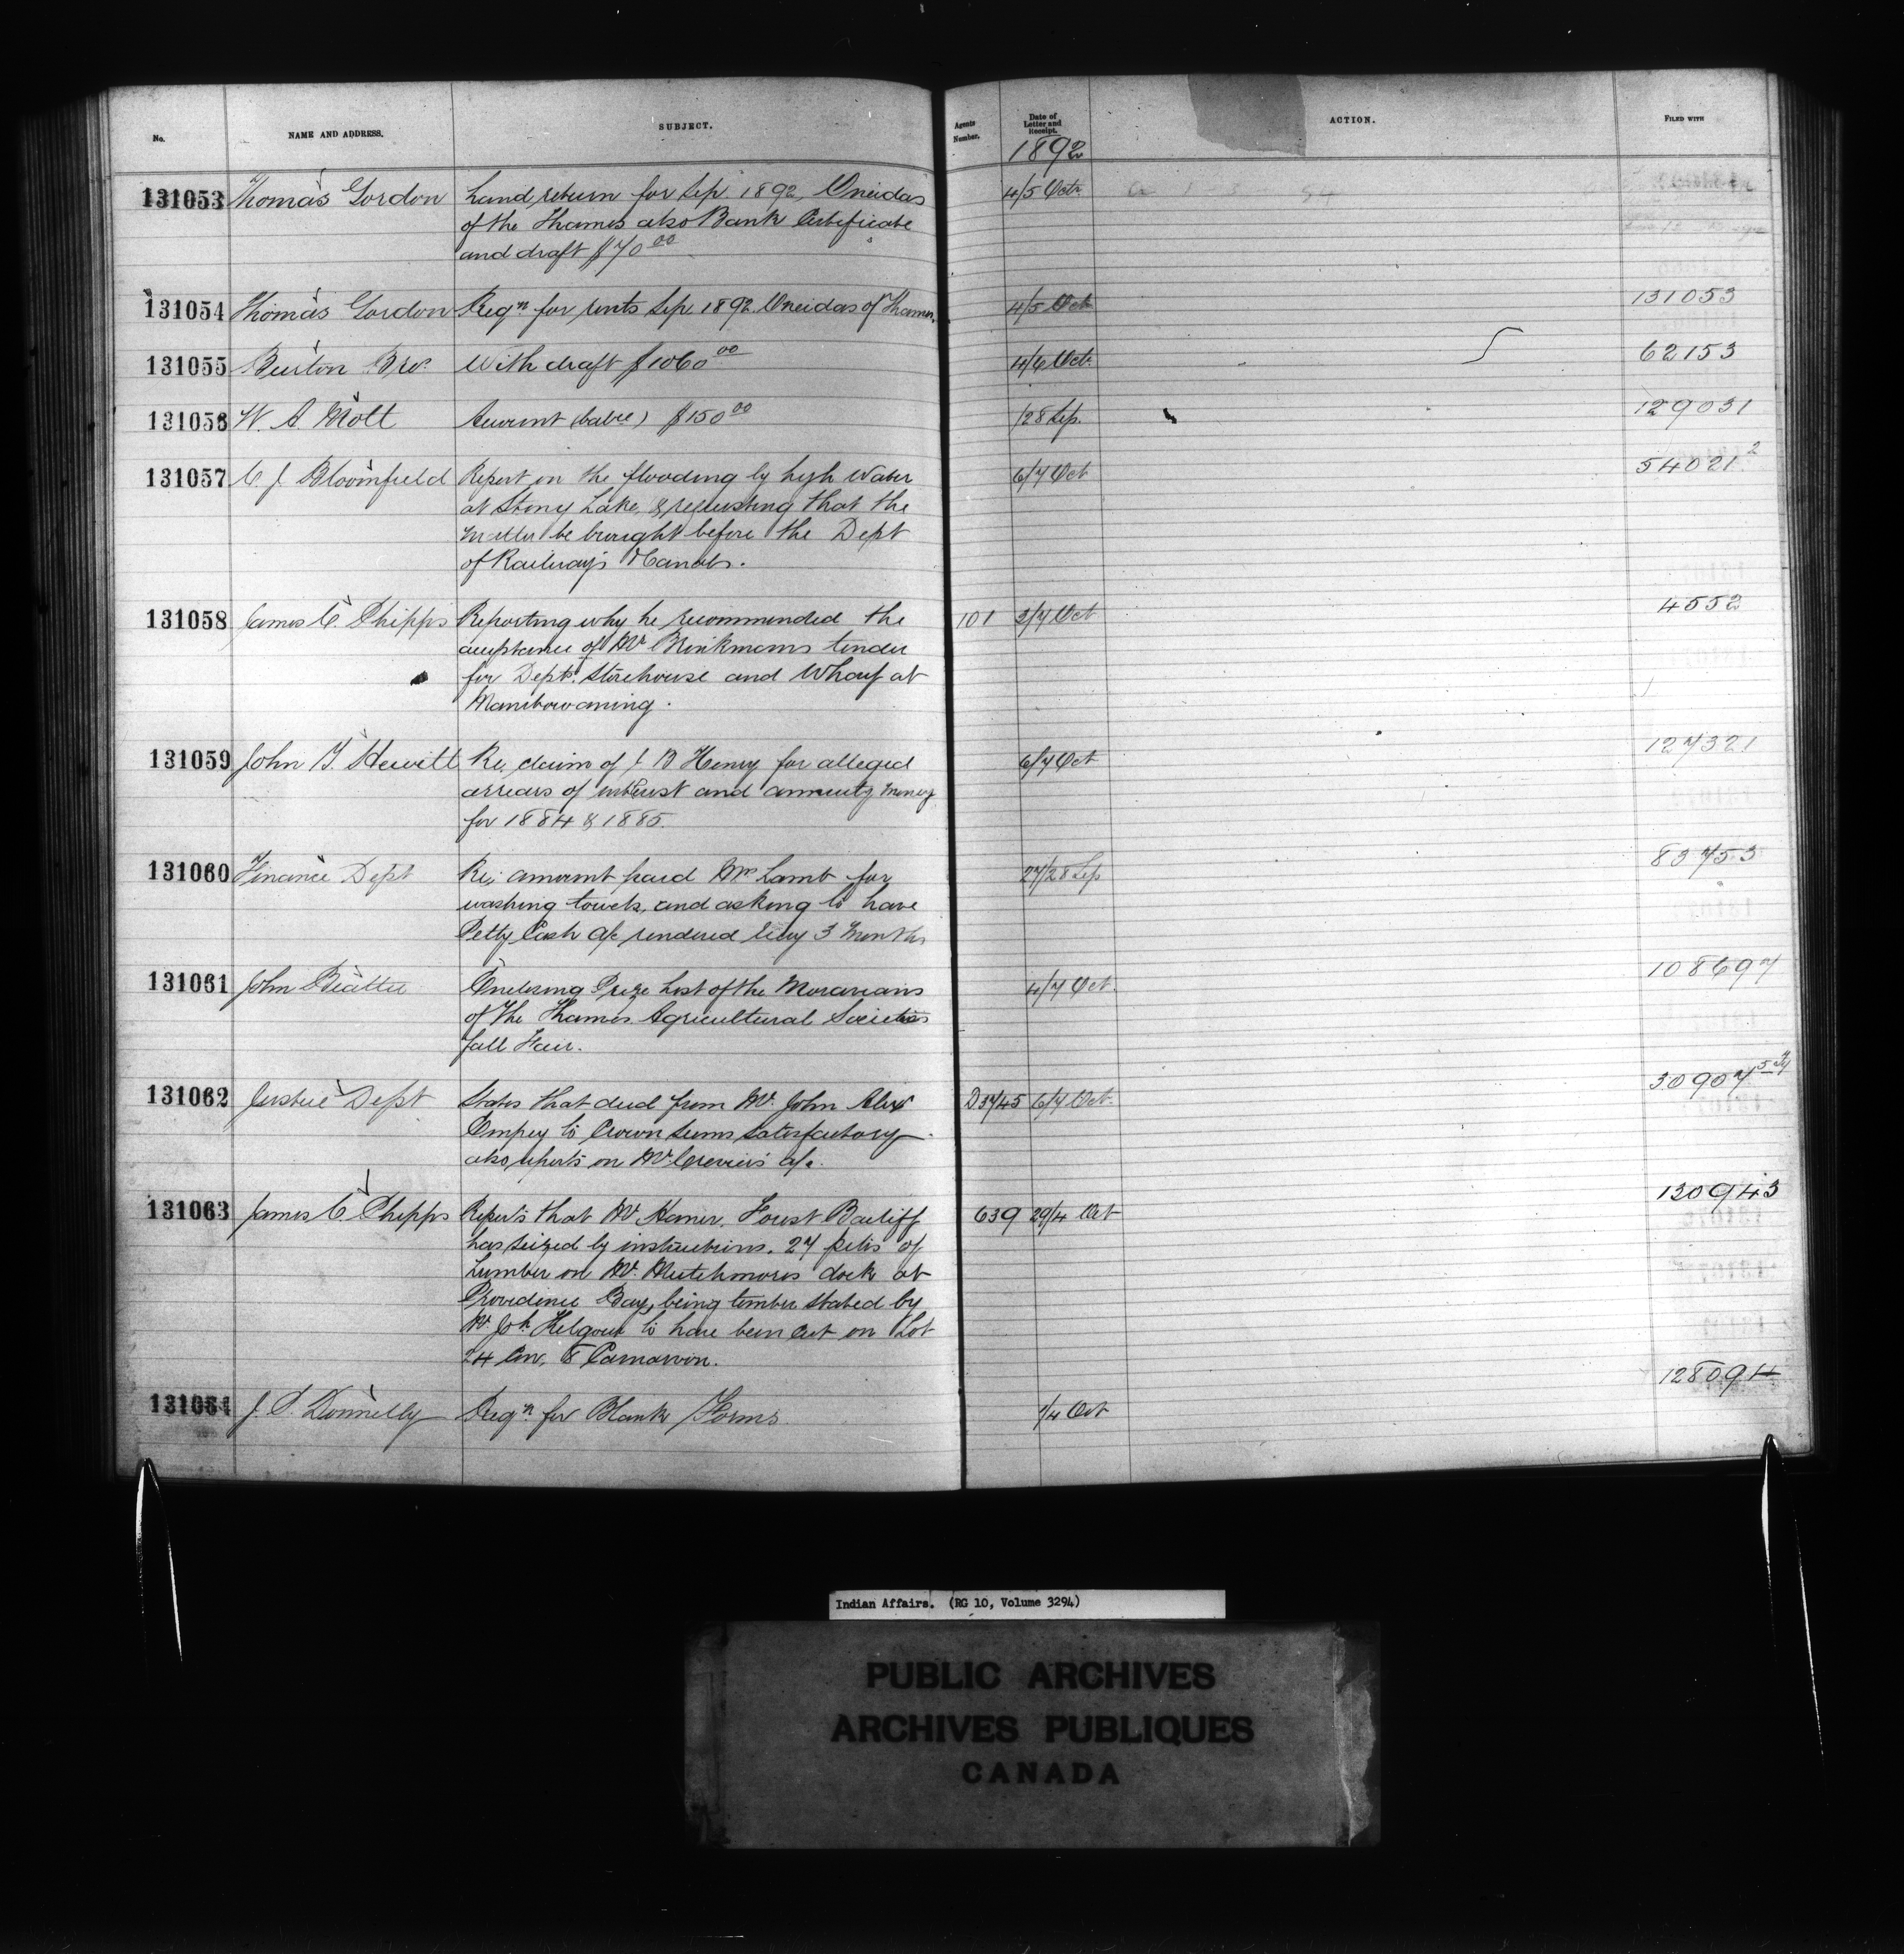 No. NAME AND ADDRESS. SUBJECT. Agents Number. Date of Letter and Receipt. ACTION. FILED WITH
1892
131053 Thomas Gordon Land return for Sep 1892, Oneidas 4/5 Octr
of the Thames also Bank Certificate
and draft $70 00
131054 Thomas Gordon Reqn for rents Sep 1892 Oneidas of Thames. 4/5 Oct 131053
131055 Burton Bro. With draft $1060 00 4/6 Oct. 62153
131056 W. A. Mott Account $150 00 /28 Sep. 129031
131057 C. J. Bloomfield Report on the flooding by high Water 6/7 Oct 54021 2
at Stony Lake, & requesting that the
matter be brought before the Dept
of Railways & Canals.
131058 James C. Phipps Reporting why he recommended the 101 3/7 Oct 4552
acceptance of Mr Brinkmans tender
for Depts. Storehouse and Wharf at
Manitowaning.
131059 John T. Hewitt Re, claim of J B Henry for alleged 6/7 Oct 127321
arrears of interest and annuity money
for 1884 & 1885.
131060 Finance Dept Re; amount paid Mrs Lamb for 27/28 Sep 83753
washing towels, and asking to have
Petty Cash a/c rendered every 3 months
131061 John Beattie Enclosing Prize List of the Moravians 4/7 Oct. 108697
of the Thames Agricultural Societies
fall Fair.
131062 Justice Dept States that deed from Mr. John Alex D3745 6/7 Oct. 30907 54
Empey to Crown seems satisfactory
also reports on Mr. a/c.
131063 James C Phipps Reports that Mr Hamer, Forest Bailiff 639 29/4 Oct 130943
has seized by instructions, 27 piles of
Lumber on Mr. Mutchmors dock at
Providence Bay, being timber stated by
Mr. Jos. Kilgour to have been cut on Lot
24 Con, 8 Carnarvon.
131064 J. P. Donnelly Reqn for Blank Forms 1/4 Oct 128094
Indian Affairs. (RG 10, Volume 3294)
PUBLIC ARCHIVES
ARCHIVES PUBLIQUES
CANADA